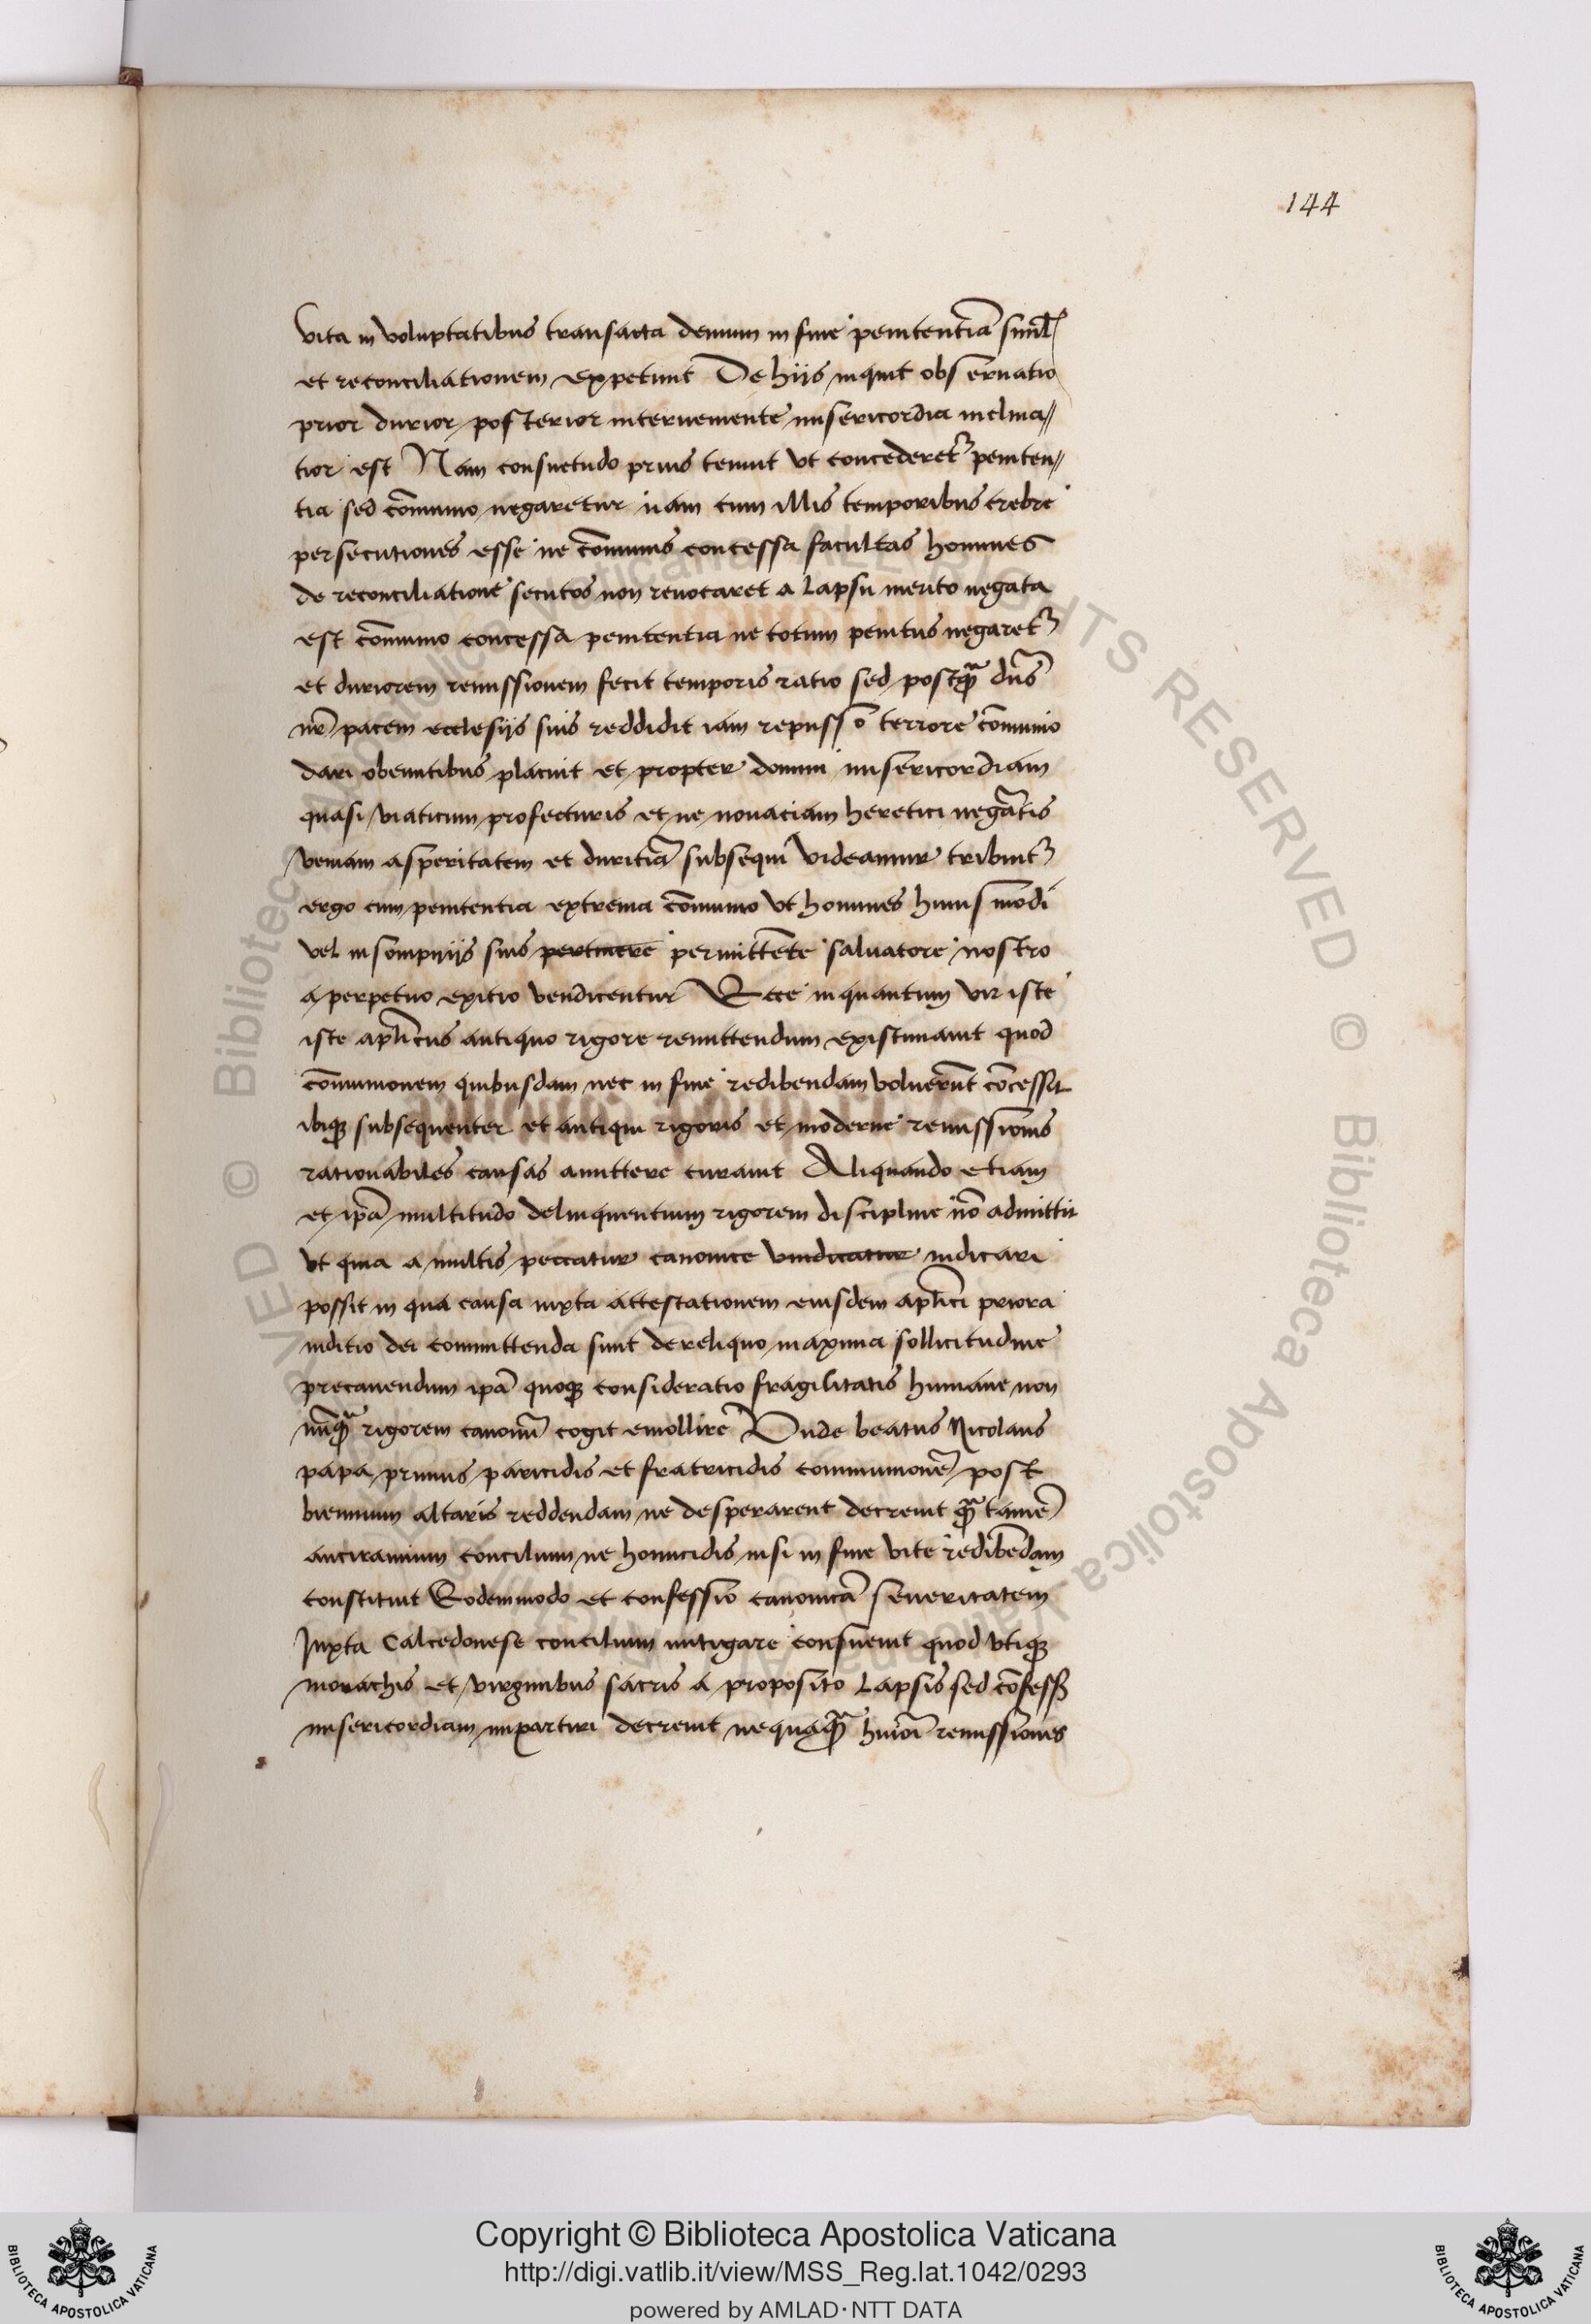 144
vita in voluptatibus transacta demum in fine penitentiã simłʳ
et reconciliationem expetunt De hijs inquit obseruatio
prior durior posterior interueniente misericordia inclina//
tior est Nam consuetudo prius tenuit vt concederetᷣ peniten//
tia sed cõmunio negaretur nam cum illis temporibus crebre
persecutiones esse ne cõmunis concessa facultas homines
de reconciliatione secutos non reuocaret a lapsu merito negata
est cõmunio concessa penitentia ne totum penitus negaretᷣ
et duriorem remissionem fecit temporis ratio sed postq̃ dñs
nr̃ pacem ecclesijs suis reddidit iam repulso terrore cõmunio
dari obeuntibus placuit et propter domini misericordiam
quasi viaticum profecturis et ne nouaciani heretici negãtis
veniam asperitatem et duritiã subsequi videamur tribuitᷣ
ergo cum penitentia extrema cõmunio vt homines huius mõdi
vel in sompnijs suis pertinere permittẽte saluatore nostro
a perpetuo exitio vendicentur Ecce in quantum vir iste
iste apl̃icus antiquo rigore remittendum existimauit quod
cõmunionem quibusdam nec in fine redibendam voluerũt cõcessit
ibiq; subsequenter et antiqui rigoris et moderne remissiõnis
rationabiles causas amittere curauit Aliquando etiam
et ip̃a multitudo delinquentium rigorem discipline nõ admittit
vt quia a multis peccatur canonice vindicatur iudicari
possit in qua causa iuxta attestationem eiusdem apl̃ici priora
iuditio dei committenda sunt de reliquo maxima sollicitudine
precauendum ip̃a quoq; consideratio fragilitatis humane non
nũq̃ rigorem canonũ cogit emollire Vnde beatus Nicolaus
papa primus paricidis et fratricidis communionẽ post
biennium altaris reddendam ne desperarent decreuit q̃ tamẽ
anciranium concilium ne homicidis nisi in fine vite redibẽdam
constituit Eodem modo et confessio canonicã seueritatem
Iuxta Calcedonese concilium mitigare consueuit quod vtiq;
monachis et virginibus sacris a proposito lapsis sed cõfessß
misericordiam impartiri decreuit nequaq̃ huiõi remissiones
Copyright © Biblioteca Apostolica Vaticana
http://digi.vatlib.it/view/MSS_Reg.lat.1042/0293
powered by AMLAD·NTT DATA
BIBLIOTECA APOSTOLICA VATICANA
BIBLIOTECA APOSTOLICA VATICANA